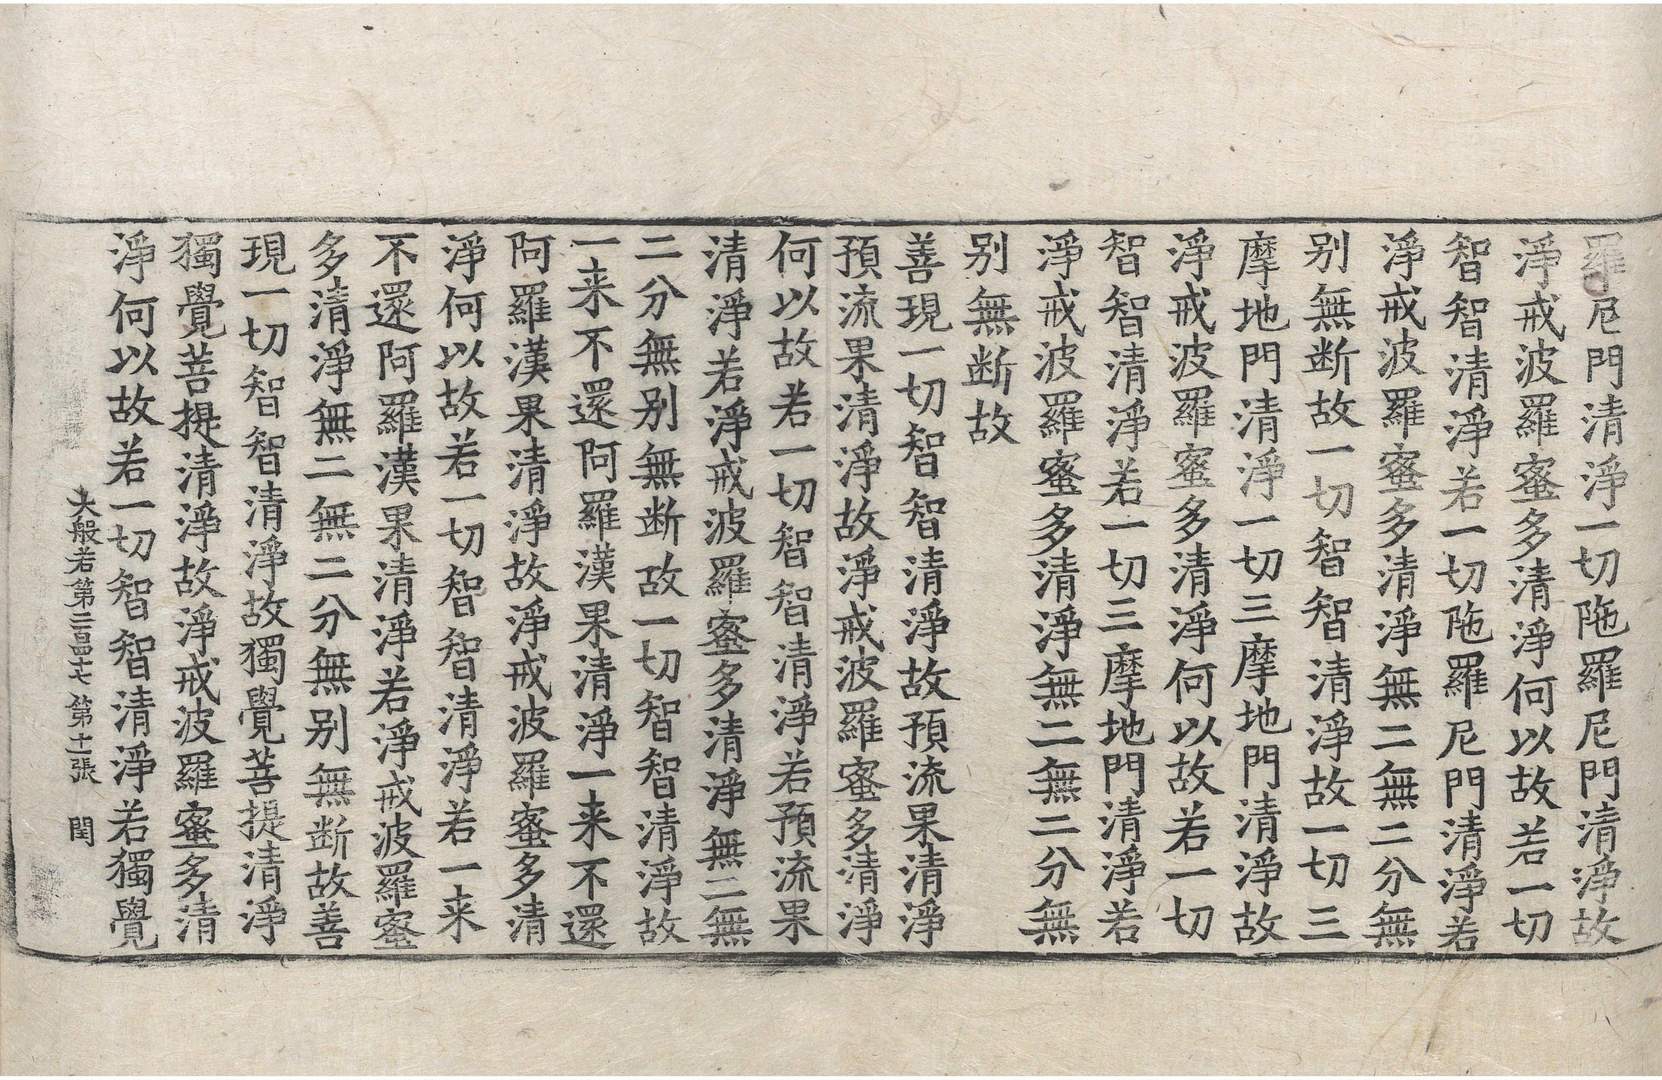 羅尼門清淨一切陁羅尼門清淨故
淨戒波羅蜜多清淨何以故若一切
智智清淨若一切陁羅尼門清淨若
淨戒波羅蜜多清淨無二無二分無
别無断故一切智智清淨故一切三
摩地門清淨一切三摩地門清淨故
淨戒波羅蜜多清淨何以故若一切
智智清淨若一切三摩地門清淨若
淨戒波羅蜜多清淨無二無二分無
别無断故
善現一切智智清淨故預流果清淨
預流果清淨故淨戒波羅蜜多清淨
何以故若一切智智清淨若預流果
清淨若淨戒波羅蜜多清淨無二無
二分無别無断故一切智智清淨故
一来不還阿羅漢果清淨一来不還
阿羅漢果清淨故淨戒波羅蜜多清
淨何以故若一切智智清淨若一来
不還阿羅漢果清淨若淨戒波羅蜜
多清淨無二無二分無别無断故善
現一切智智清淨故獨覺菩提清淨
獨覺菩提清淨故淨戒波羅蜜多清
淨何以故若一切智智清淨若獨覺
大般若第二百四十七 第十一張 閏